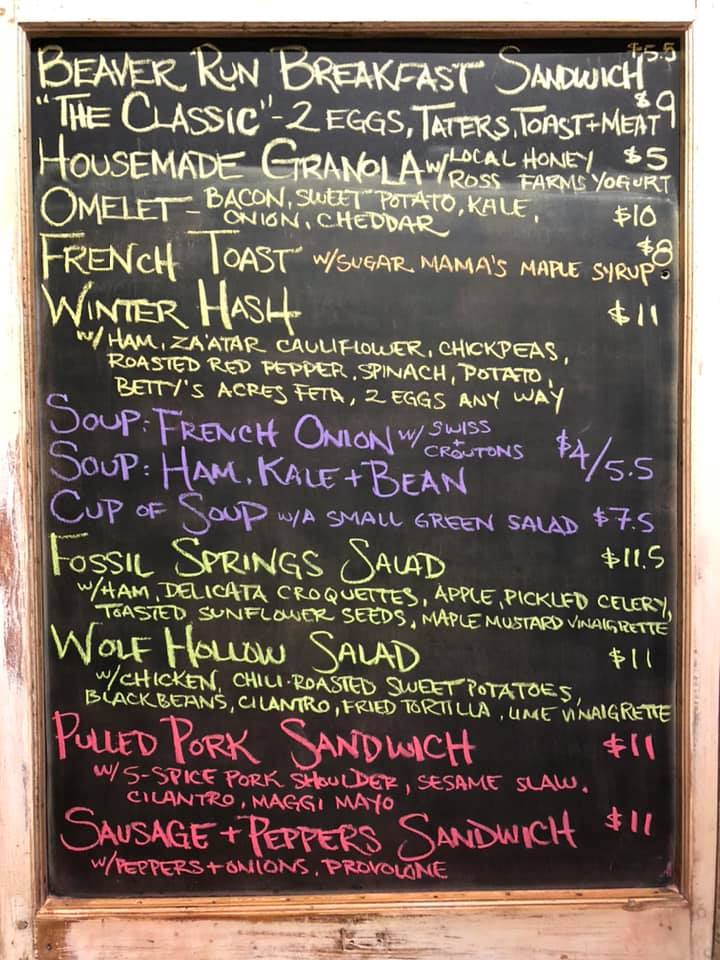 BEAVER RUN BREAKFAST SANDWICH $5.5
"THE CLASSIC" - 2 EGGS, TATERS, TOAST + MEAT $9
HOUSEMADE GRANOLA w/ LOCAL HONEY $5
ROSS FARMS YOGURT
OMELET - BACON, SWEET POTATO, KALE,
ONION, CHEDDAR $10
FRENCH TOAST w/SUGAR MAMA'S MAPLE SYRUP $8
WINTER HASH $11
w/ HAM, ZA'ATAR CAULIFLOWER, CHICKPEAS,
ROASTED RED PEPPER, SPINACH, POTATO,
BETTY'S ACRES FETA, 2 EGGS ANY WAY
SOUP: FRENCH ONION w/ SWISS
+
CROUTONS $4/5.5
SOUP: HAM, KALE + BEAN
CUP OF SOUP w/A SMALL GREEN SALAD $7.5
FOSSIL SPRINGS SALAD $11.5
w/HAM, DELICATA CROQUETTES, APPLE, PICKLED CELERY,
TOASTED SUNFLOWER SEEDS, MAPLE MUSTARD VINAIGRETTE
WOLF HOLLOW SALAD $11
w/CHICKEN, CHILI-ROASTED SWEET POTATOES,
BLACK BEANS, CILANTRO, FRIED TORTILLA, LIME VINAIGRETTE
PULLED PORK SANDWICH $11
w/ 5-SPICE PORK SHOULDER, SESAME SLAW,
CILANTRO, MAGGI MAYO
SAUSAGE + PEPPERS SANDWICH $11
w/PEPPERS + ONIONS, PROVOLONE